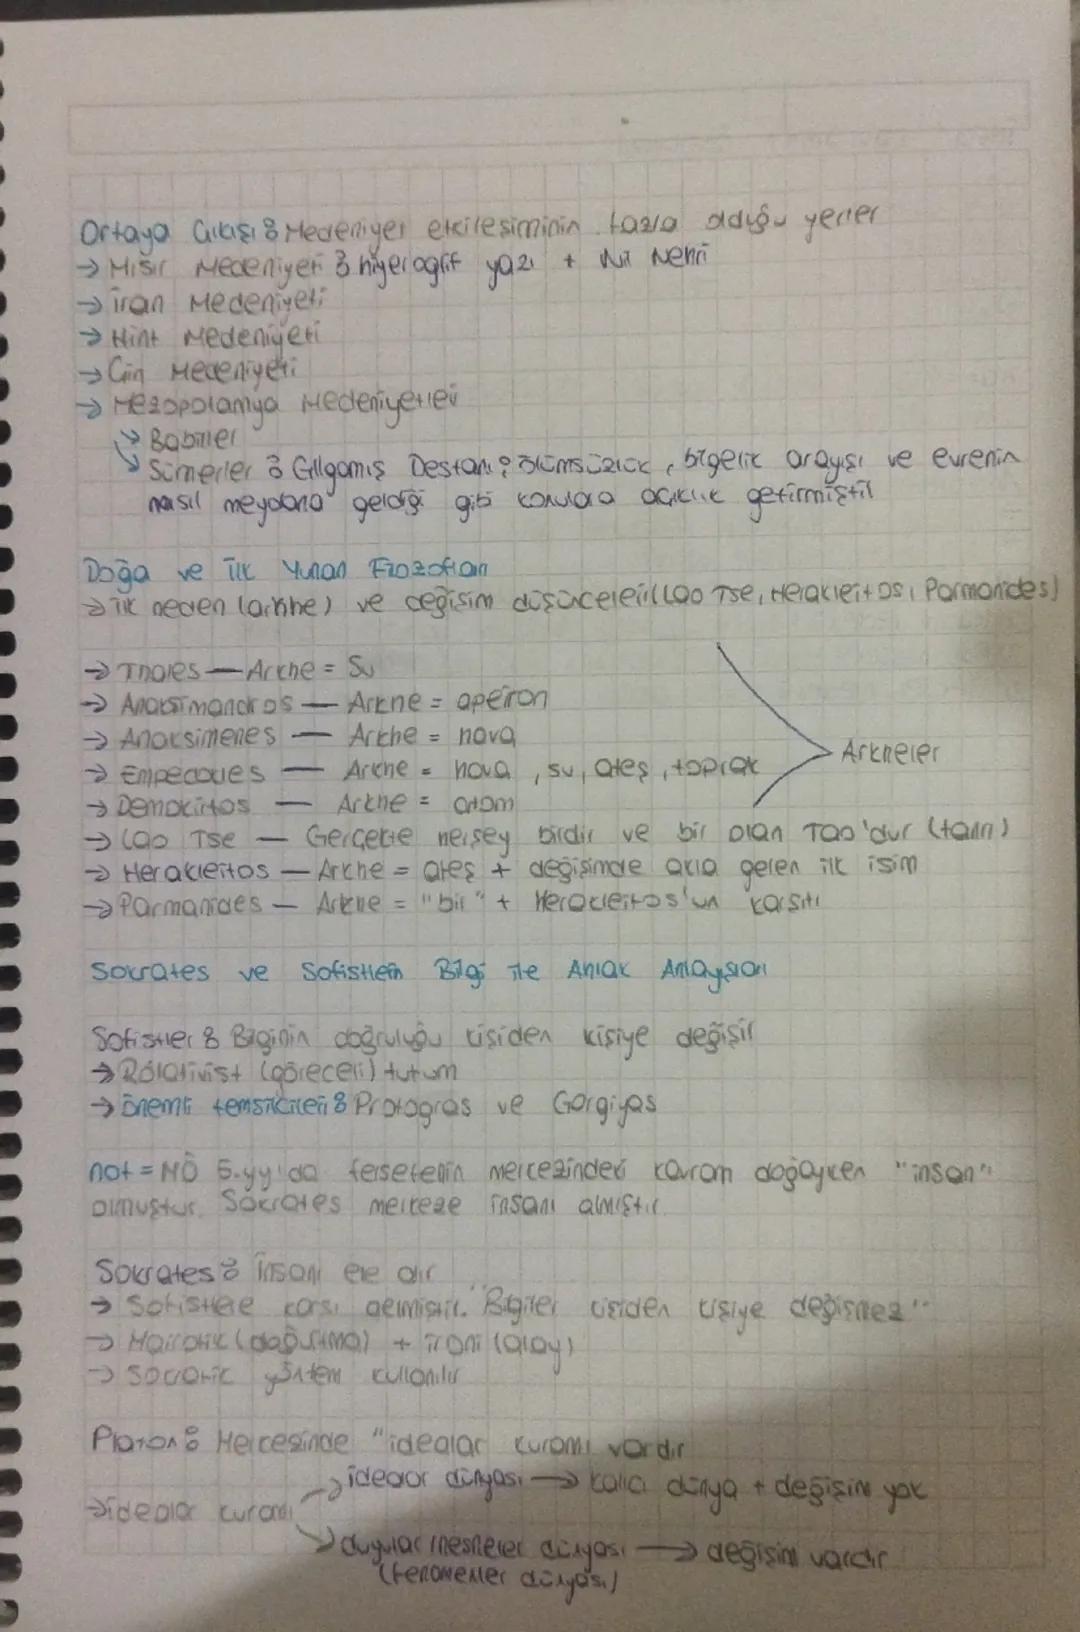 Ortaya Çıkışı: Medeniyet etkileşiminin fazla olduğu yerler
→ Mısır Medeniyeti: hiyeroglif yazı + Nil Nehri
→ İran Medeniyeti
→ Hint Medeniyeti
→ Çin Medeniyeti
→ Mezopotamya Medeniyetleri
↳ Babiller
↳ Sümerler: Gılgamış Destanı: ölümsüzlük, bilgelik arayışı ve evrenin
nasıl meydana geldiği gibi konulara açıklık getirmiştir
Doğa ve İlk Yunan Filozofları
→ ilk neden (arkhe) ve değişim düşünceleri (Lao Tse, Herakleitos, Parmanides)
→ Thales — Arkhe = Su
→ Anaksimandros — Arkhe = apeiron
→ Anaksimenes — Arkhe = hava
→ Empedokles — Arkhe = hava, su, ateş, toprak
Arkheler
→ Demokritos — Arkhe = atom
→ Lao Tse — Gerçekte herşey birdir ve bir olan Tao'dur (tanrı)
→ Herakleitos — Arkhe = ateş + değişimde akla gelen ilk isim
→ Parmanides — Arkhe = "bir" + Herakleitos'un karşıtı
Sokrates ve Sofistlerin Bilgi ile Ahlak Anlayışları
Sofistler: Bilginin doğruluğu kişiden kişiye değişir
→ Rölativist (göreceli) tutum
→ önemli temsilcileri: Protogras ve Gorgiyas
not = MÖ 5.yy'da felsefenin merkezindeki kavram doğayken "insan"
olmuştur. Sokrates merkeze insanı almıştır.
Sokrates: İnsanı ele alır
→ Sofistlere karşı gelmiştir. "Bilgiler kişiden kişiye değişmez"
→ Maiotik (doğurtma) + ironi (alay)
→ Sokratik yöntem kullanılır
Platon: Merkezinde "idealar kuramı vardır
→ idealar dünyası → kalıcı dünya + değişim yok
→ idealar kuramı
↘ duyular/nesneler dünyası → değişim vardır
(fenomenler dünyası)